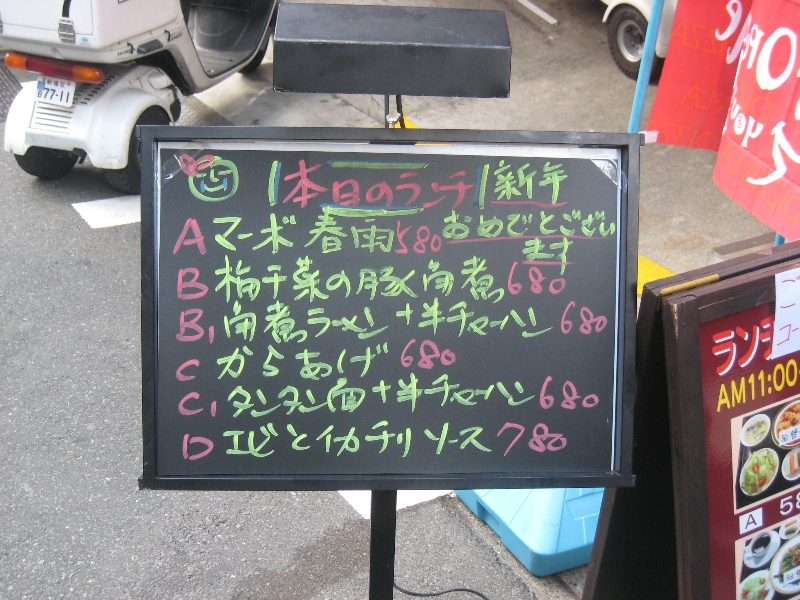 本日のランチ 新年
おめでとうござい
ます
A マーボ春雨 580
B 梅干菜の豚角煮 680
B1 角煮ラーメン+半チャーハン 680
C からあげ 680
C1 タンタン面+半チャーハン 680
D エビとイカチリソース 780
77-11
ランチ
AM11:00
A 58
OPe